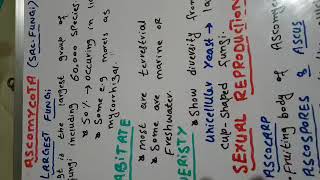 ASCOMYCOTA
(SAC-FUNGI)
LARGEST FUNGI
It is the largest group of
fungi including 60,000 species
50% → occuring in
Some e.g morels as
mycorhizal.
HABITATE
most are terrestrial
Some are marine or
Freshwater.
show diversity from
unicellular yeast →
cup-shaped fungi.
SEXUAL REPRODUCTION
ASCOCARP
Fruiting body of Ascomy
ASCOSPORES & ASCUS